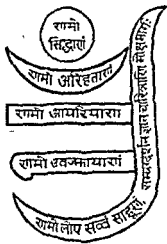 रामो
सिद्धाणं
रामो अरिहंताणं
रामो आयरियाणं
रामो उवज्झायाणं
रामो लोए सव्व साहूणं
सम्यग्दर्शन ज्ञान चारित्राणि मोक्षमार्गः